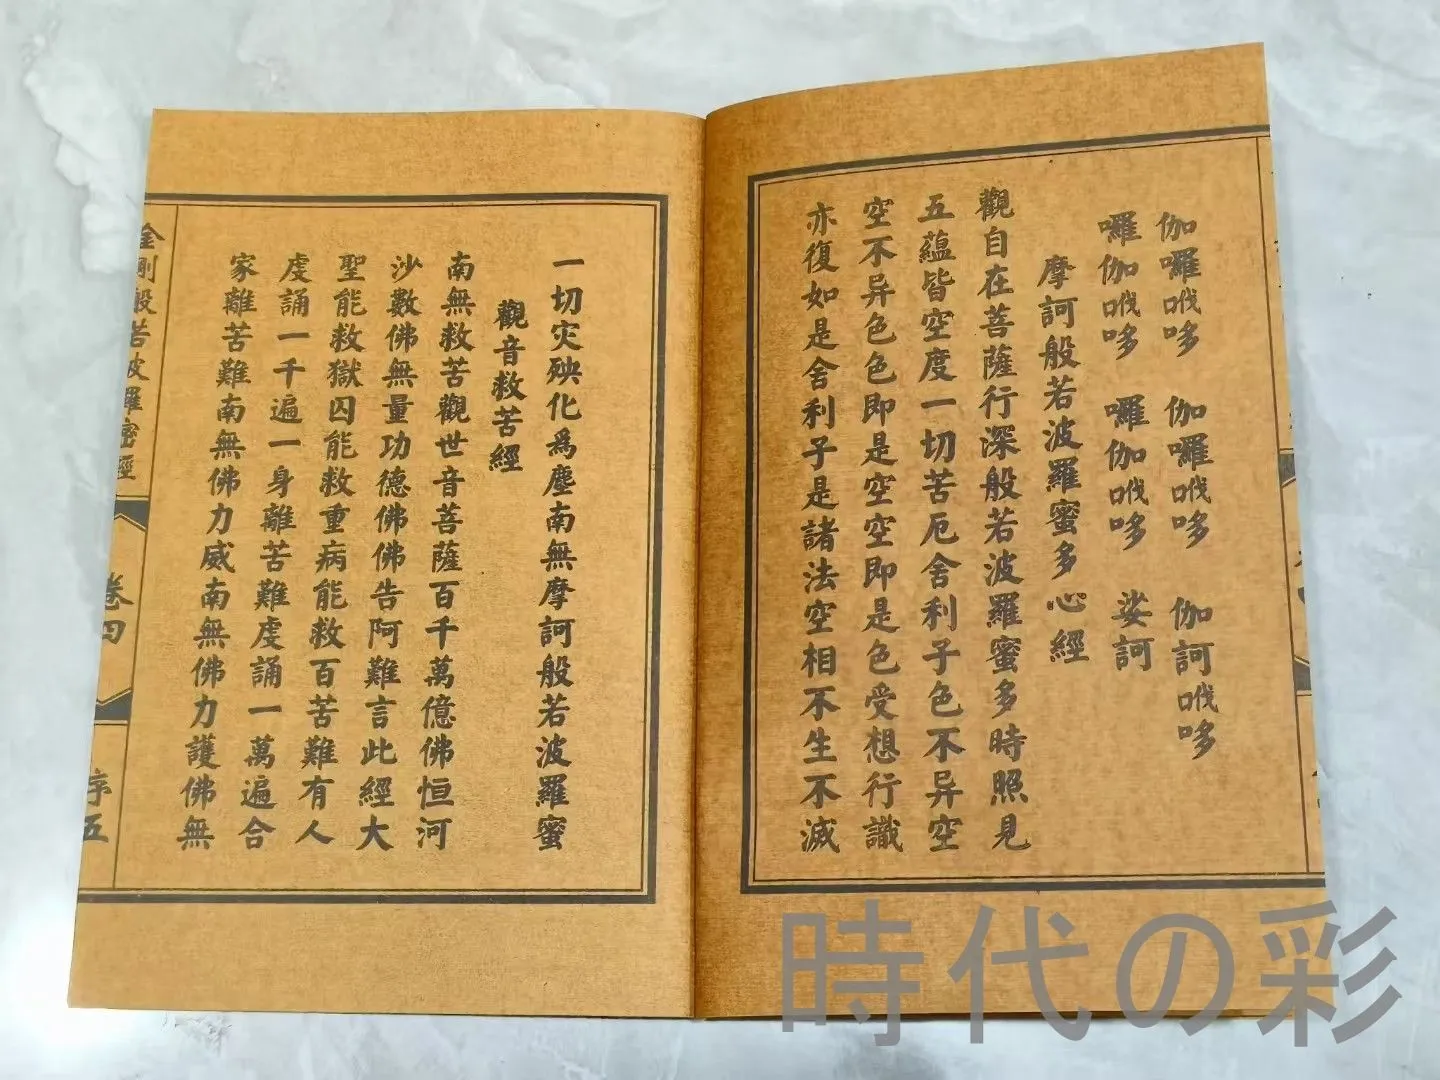 伽囉哦哆 伽囉哦哆 伽訶哦哆
囉伽哦哆 囉伽哦哆 娑訶
摩訶般若波羅蜜多心經
觀自在菩薩行深般若波羅蜜多時照見
五蘊皆空度一切苦厄舍利子色不异空
空不异色色即是空空即是色受想行識
亦復如是舍利子是諸法空相不生不滅
一切灾殃化爲塵南無摩訶般若波羅蜜
觀音救苦經
南無救苦觀世音菩薩百千萬億佛恒河
沙數佛無量功德佛佛告阿難言此經大
聖能救獄囚能救重病能救百苦難有人
虔誦一千遍一身離苦難虔誦一萬遍合
家離苦難南無佛力威南無佛力護佛無
金剛般若波羅密經
卷四
序五
時代の彩